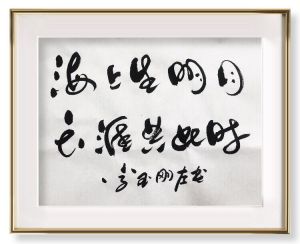 海上生明月
天涯共此时
李玉刚左书